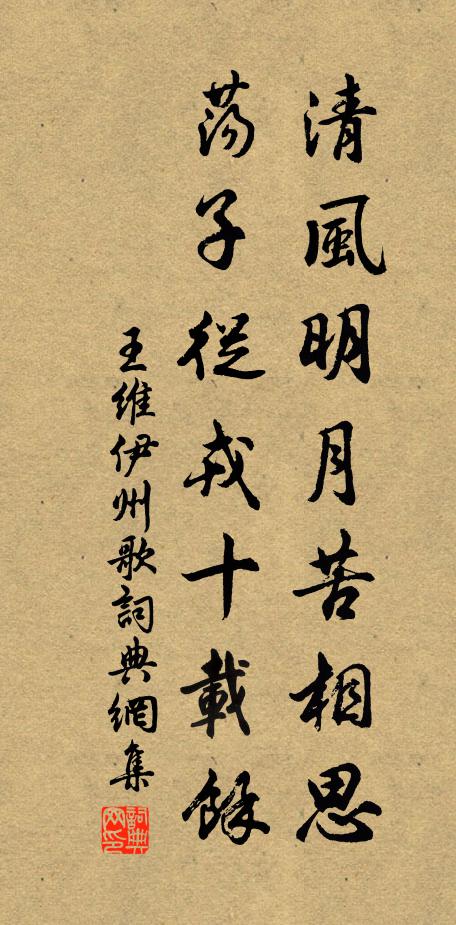 清風明月苦相思
蕩子從戎十載餘
王維伊州歌詞典網集
詞典网印